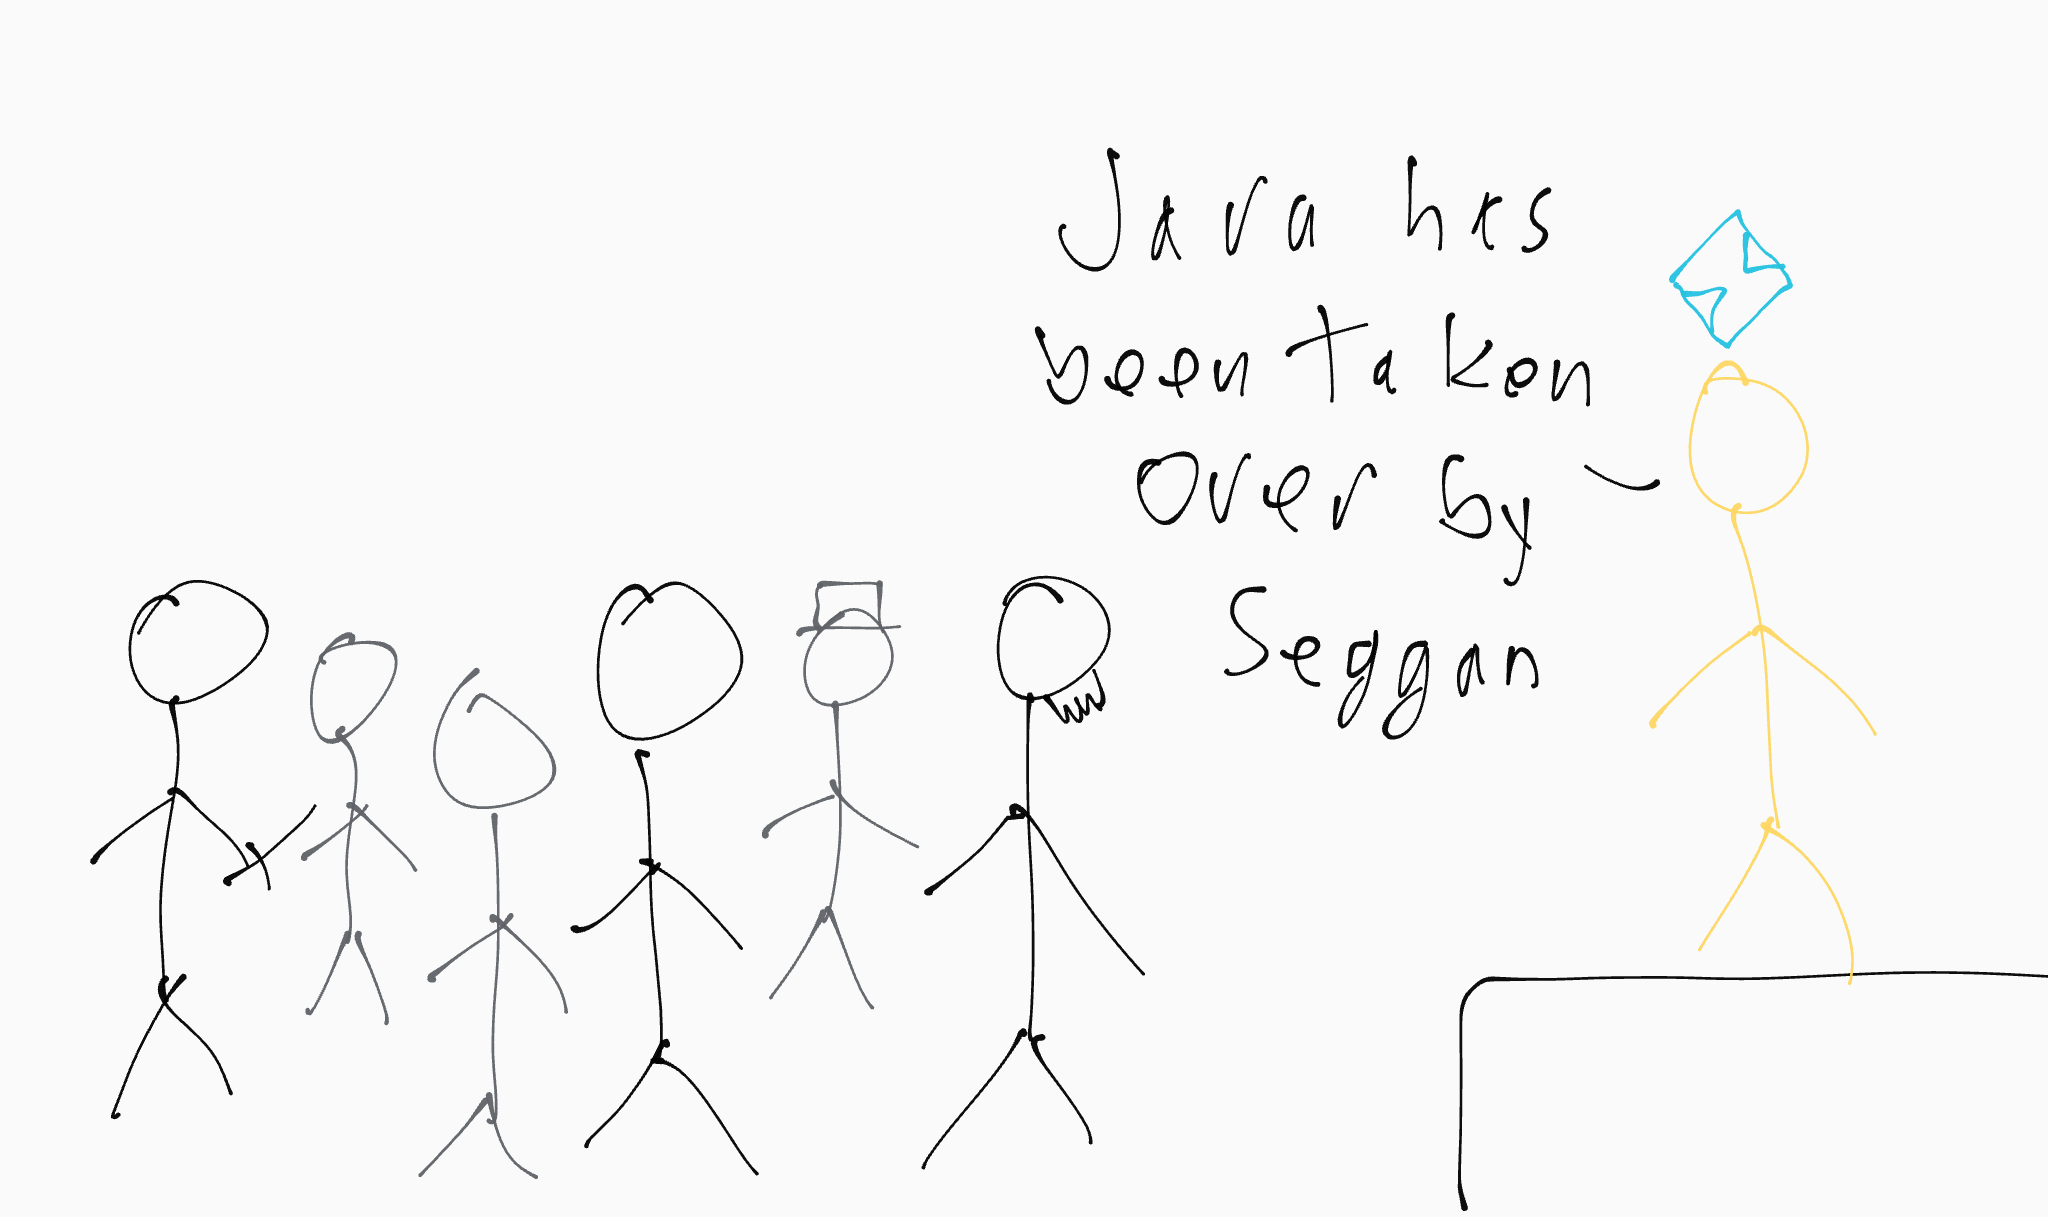 Java has
been taken
over by
Seggan